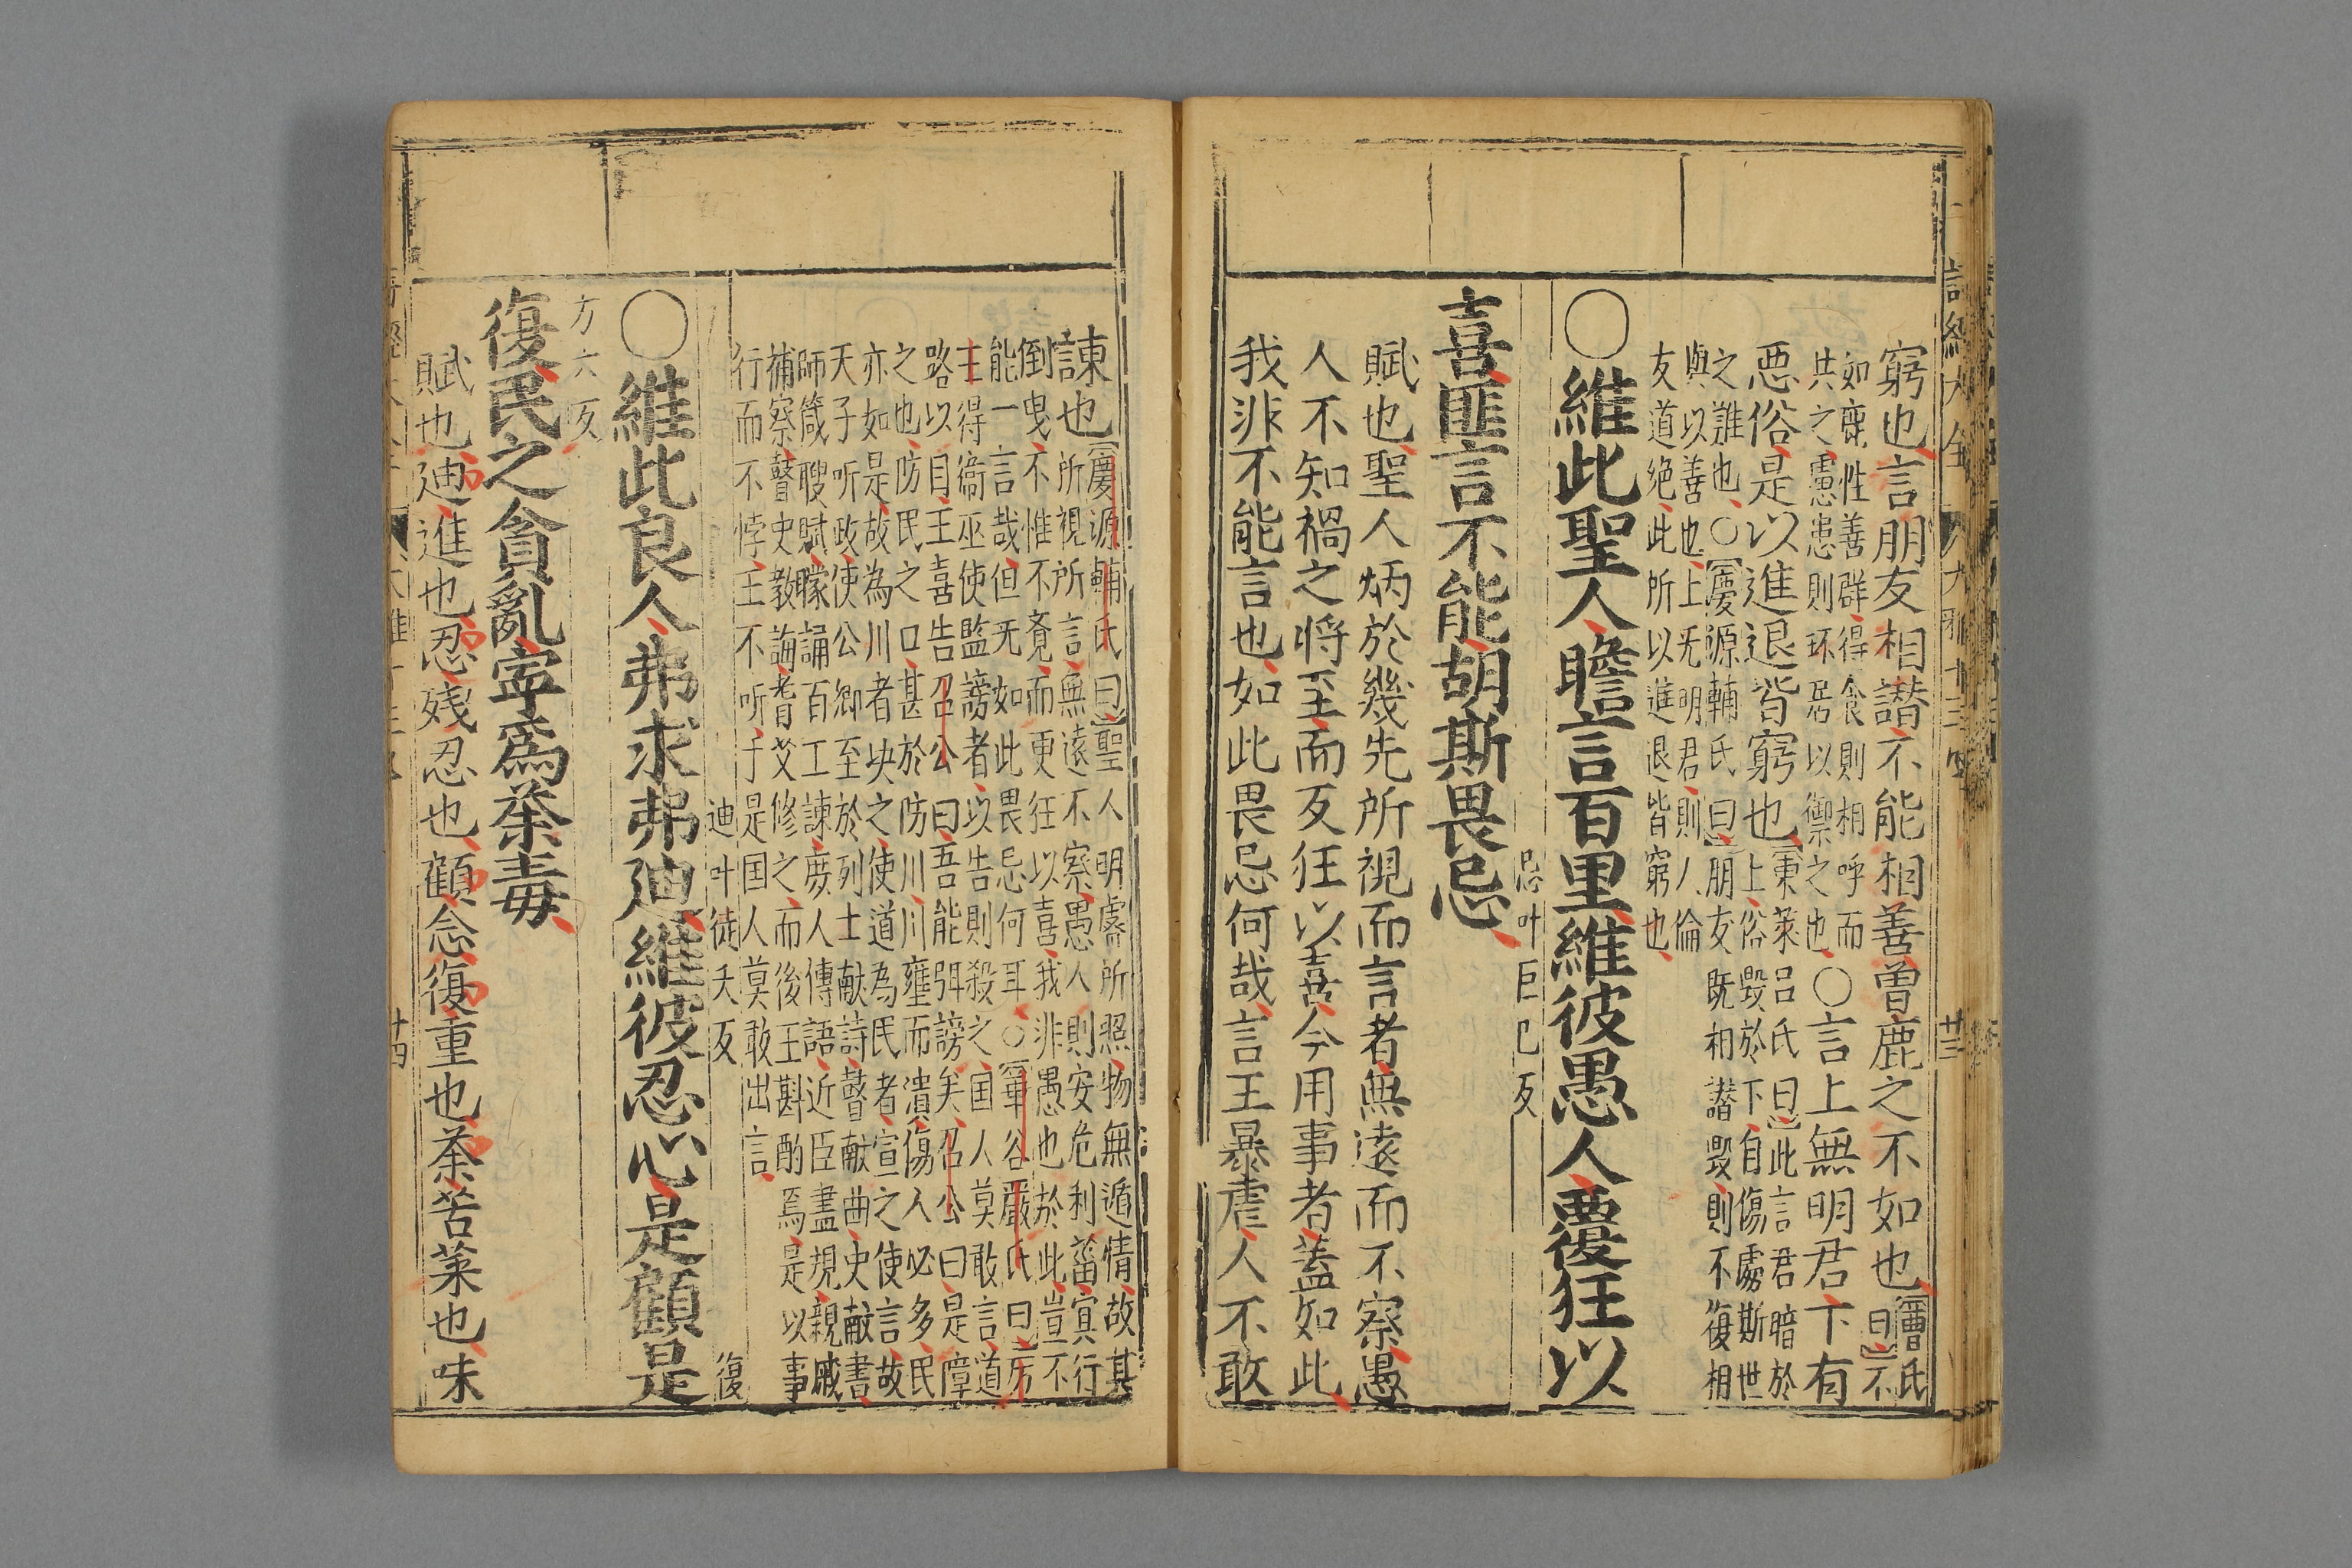 窮也言朋友相譖不能相善曾鹿之不如也【曹氏
曰】不
如鹿性善群得食則相呼而
共之慮患則环居以禦之也○言上無明君下有
惡俗是以進退皆窮也【東萊呂氏曰】此言君暗於
上俗毀於下自傷處斯世
之難也○【慶源輔氏曰】朋友既相譖毀則不復相
與以善也上无明君則人倫
友道絶此所以進退皆窮也
○維此聖人瞻言百里維彼愚人覆狂以
忌叶巨已反
喜匪言不能胡斯畏忌
賦也聖人炳於幾先所視而言者無遠而不察愚
人不知禍之將至而反狂以喜今用事者蓋如此
我非不能言也如此畏忌何哉言王暴虐人不敢
諫也【慶源輔氏曰】聖人明虛所照物無遁情故其
所視所言無遠不察愚人則安危利菑冥行
倒曳不惟不覔而更狂以喜我非愚也於此豈不
能一言哉但无如此畏忌何耳○【華谷嚴氏曰】厉
王得衞巫使監謗者以告則殺之国人莫敢言道
路以目王喜告召公曰吾能弭謗矣召公曰是障
之也防民之口甚於防川川壅而潰傷人必多民
亦如是故為川者决之使道為民者宣之使言故
天子听政使公卿至於列士献詩瞽献曲史献書
師箴瞍賦矇誦百工諫庶人傳語近臣盡規親戚
補察瞽史教誨耆艾修之而後王斟酌焉是以事
行而不悖王不听于是国人莫敢出言
迪叶徒夭反 復
○維此良人弗求弗迪維彼忍心是顧是
方六反
復民之貪亂寜爲荼毒
賦也迪進也忍殘忍也顧念復重也荼苦菜也味